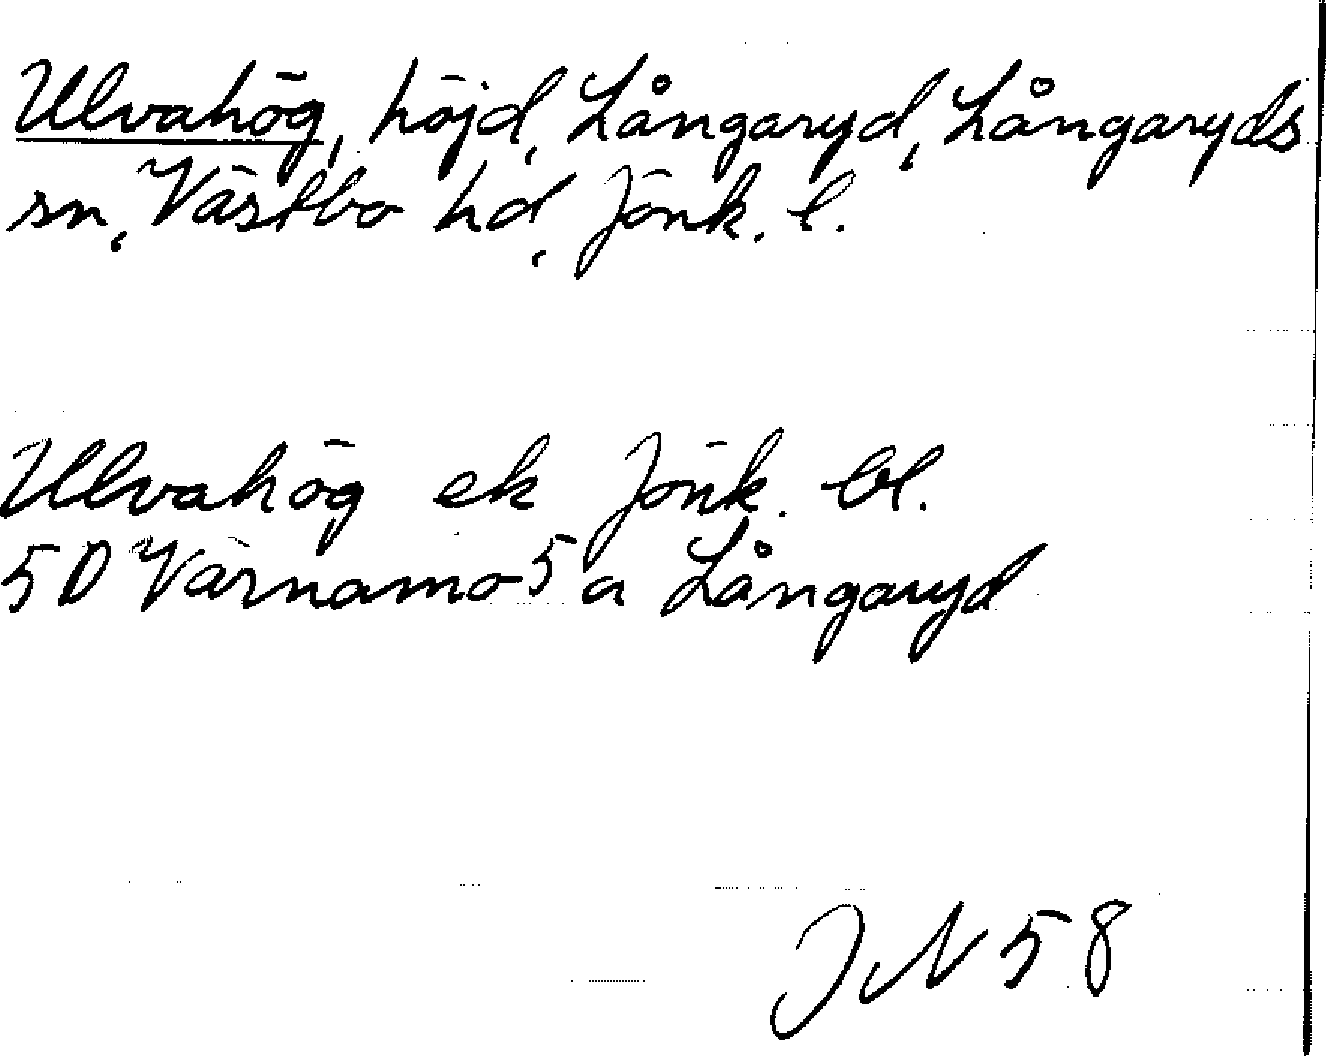 Ulvahög, höjd, Långaryd, Långaryds
sn, Västbo hd, Jönk. l.
Ulvahög ek Jönk. bl.
5D Värnamo 5 a Långaryd
JN 58